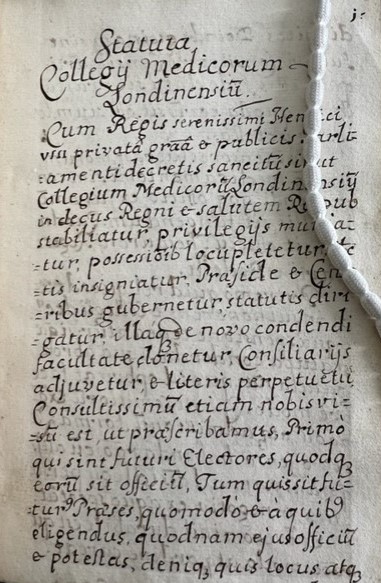 j.
Statuta
Collegij Medicorum
Londinensiū.
Cum Regis serenissimi Hen ici
vsu privatâ graâ & publicis
=amenti decretis sancitū sit ut
Collegium Medicorū Londin ensiū
in decus Regni & salutem R pub
stabiliatur, privilegijs mu a=
=tur, possessioib locupletetur,
=tis insigniatur, Præside & Cen
=ribus gubernetur, statutis diri
=gatur, illaqꝫ de novo condendi
facultate donetur, Consiliarijs
adjuvetur, & literis perpetuetur,
Consultissimū etiam nobis vi=
=sū est, ut præscribamus, Primò
qui sint futuri Electores, quodqꝫ
eorū sit officiū, Tum quis sit fu=
=turꝰ Præses, quomodo & à quibꝰ
eligendus, quodnam ejus officiū
& potestas, deniqꝫ quis locus atqꝫ